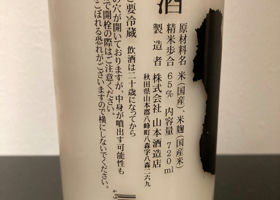 酒
原材料名 米(国産)、米麹(国産米)
精米歩合 65% 内容量 720ml
製造者 株式会社 山本酒造店
秋田県山本郡八峰町八森字八森二六九
要冷蔵 飲酒は二十歳になってから
の穴が開いておりますが、中身が噴出す可能性も
で開栓の際はご注意ください。
こぼれる恐れがございますので横にしないでください。